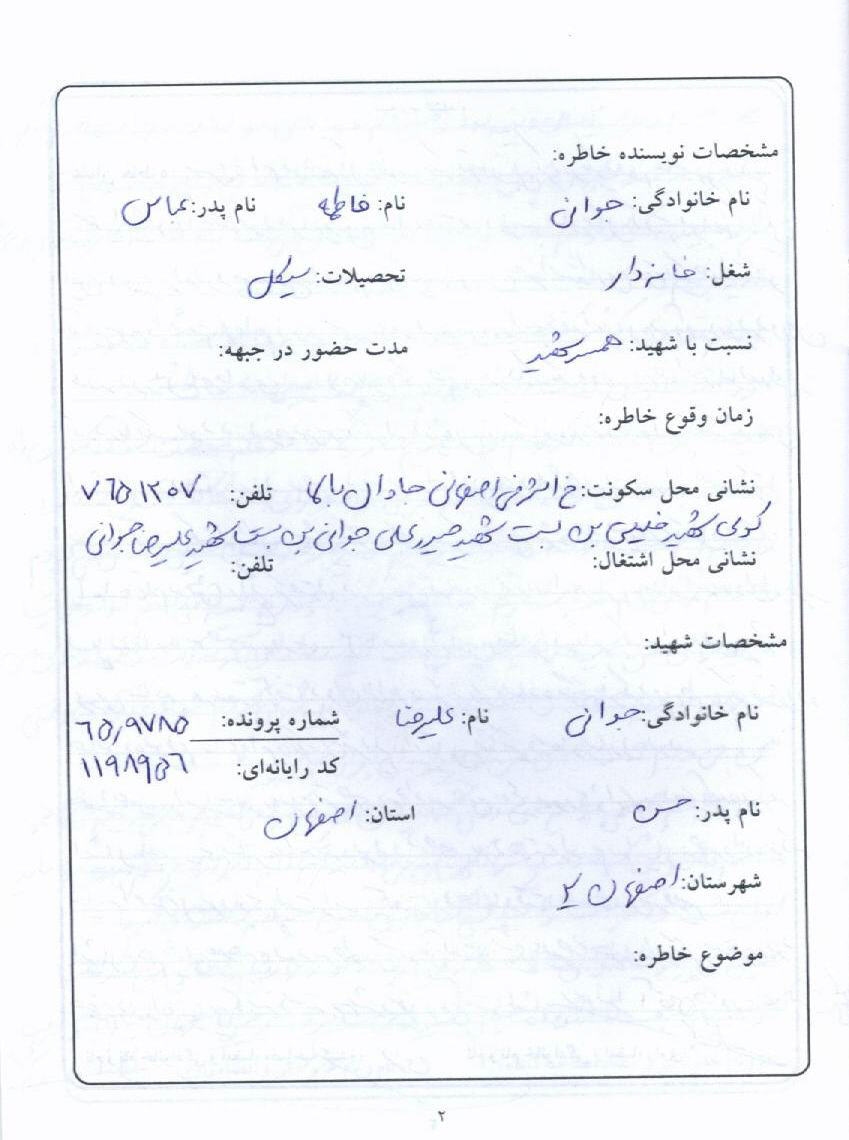 مشخصات نویسنده خاطره:
نام خانوادگی: جوانی نام: فاطمه نام پدر: عباس
شغل: خانه‌دار تحصیلات: سیکل
نسبت با شهید: همسر شهید مدت حضور در جبهه:
زمان وقوع خاطره:
نشانی محل سکونت: خ اشرفی اصفهانی جاوان بالا تلفن: ۷۶۵۱۲۰۷
کوی شهید بن بست شهید حیدر علی جوانی بن بست شهید علیرضا جوانی
نشانی محل اشتغال: تلفن:
مشخصات شهید:
نام خانوادگی: جوانی نام: علیرضا شماره پرونده: ۶۵٫۹۷۸۵
کد رایانه‌ای: ۱۱۹۸۹۵۶
نام پدر: حسن استان: اصفهان
شهرستان: اصفهان ۲
موضوع خاطره:
۲